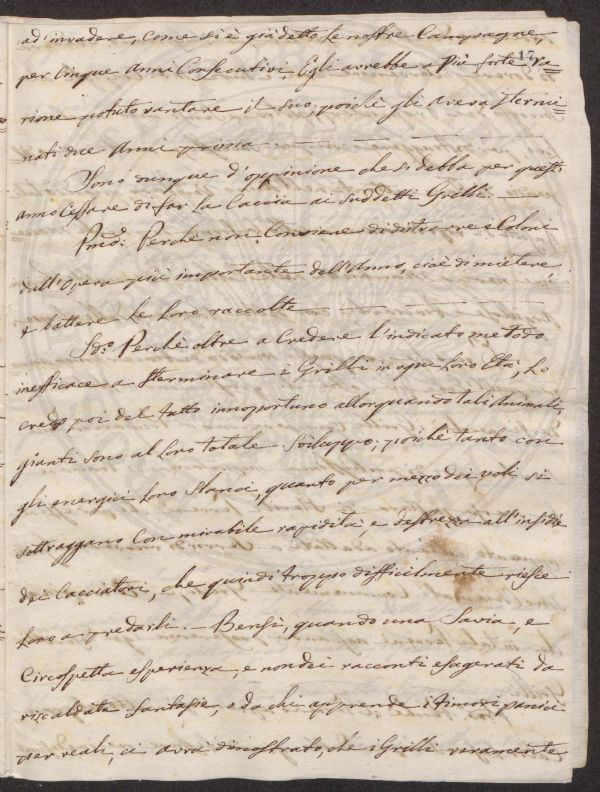 ad'invadere, come si è già detto le nostre Campagne,
17
per Cinque Anni Consecutivi Egli avrebbe a più forte ra=
gione potuto vantare il suo, poichè gli aveva stermi=
nati due Anni prima
Sono dunque d'oppinione che si debba per quest'
anno Cessare di far la Caccia ai suddetti Grilli. —
Pmo: Perchè non Conviene di distrarre i Coloni
dall'Opera più importante dell'Anno, cioè di mietere,
e battere le loro raccolte
Sdo: Perchè oltre a Credere l'indicato metodo
inefficace a sterminare i Grilli in ogni loro Età, Lo
credo poi del tutto innoportuno allorquando tali Animali,
giunti sono al loro totale Sviluppo; poichè tanto con
gli energici loro slanci, quanto per mezzo dei voli si
sottraggano Con mirabile rapidità, e destrezza all'insidie
dei Cacciatori, che quindi troppo difficilmente riesce
loro a predarli. — Bensì, quando una Savia, e
Circospetta esperienza, e non dei racconti esagerati da
riscaldate fantasie, e da chi apprende i timori panici
per reali, ci avrà dimostrato, che i Grilli veramente